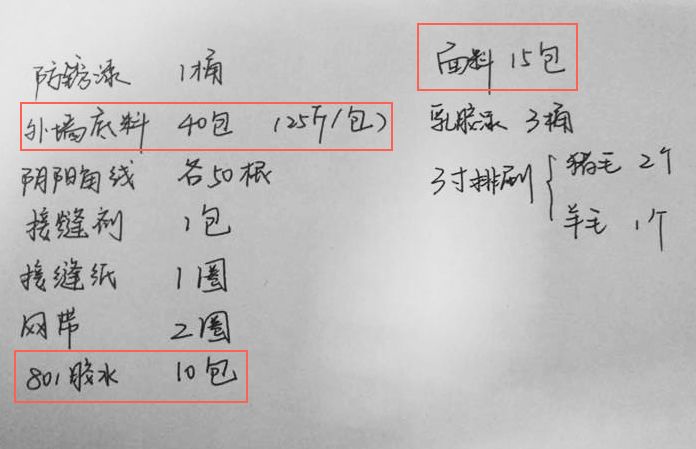 防锈漆 1桶
外墙底料 40包 (25斤/包)
阴阳角线 各50根
接缝剂 1包
接缝纸 1圈
网带 2圈
801胶水 10包
面料 15包
乳胶漆 3桶
3寸排刷
猪毛 2个
羊毛 1个